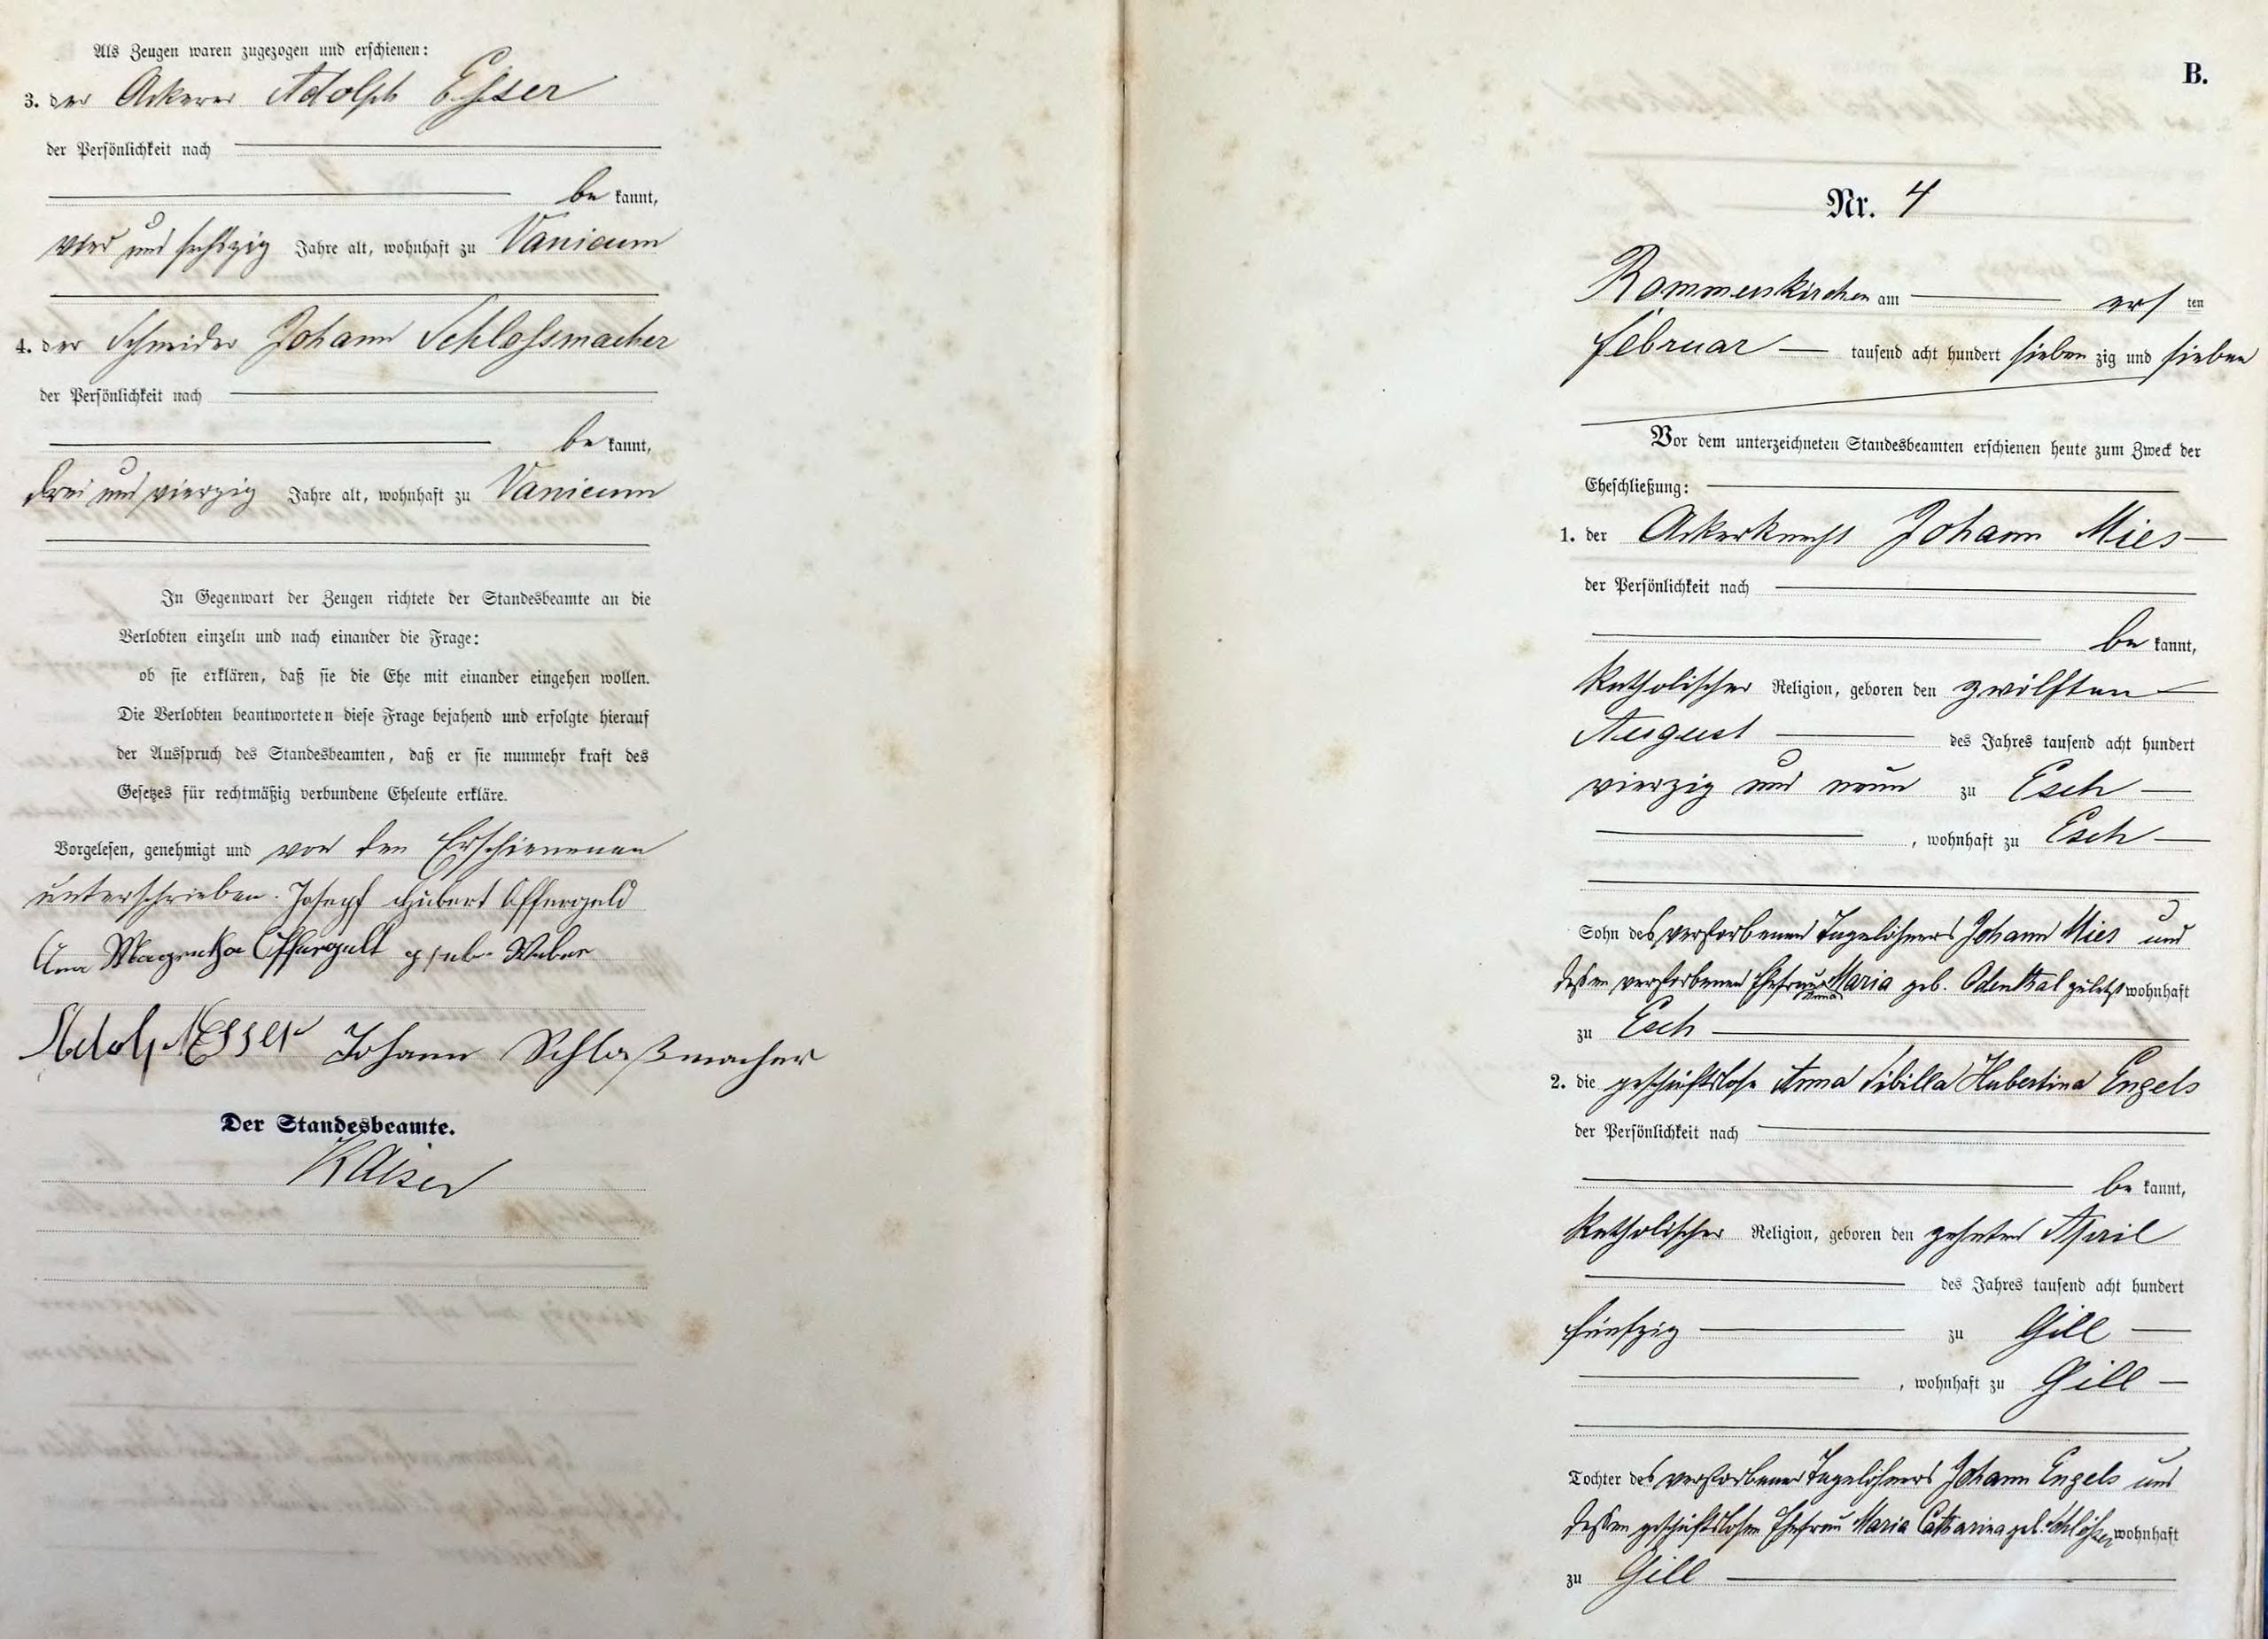 Als Zeugen waren zugezogen und erschienen:
3. der Ackerer Adolph Esser
der Persönlichkeit nach
be kannt,
vier und sechszig Jahre alt, wohnhaft zu Vanicum
4. der Schneider Johann Schlossmacher
der Persönlichkeit nach
be kannt,
drei und vierzig Jahre alt, wohnhaft zu Vanicum
In Gegenwart der Zeugen richtete der Standesbeamte an die
Verlobten einzeln und nach einander die Frage:
ob sie erklären, daß sie die Ehe mit einander eingehen wollen.
Die Verlobten beantworteten diese Frage bejahend und erfolgte hierauf
der Ausspruch des Standesbeamten, daß er sie nunmehr kraft des
Gesetzes für rechtmäßig verbundene Eheleute erkläre.
Vorgelesen, genehmigt und von den Erschienenen
unterschrieben. Joseph Hubert Offergeld
Anna Margretha Offergelt geb. Weber
Adolph Esser Johann Schloßmacher
Der Standesbeamte.
Kaiser
B.
Nr. 4
Rommerskirchen am ersten
Februar tausend acht hundert siebenzig und sieben
Vor dem unterzeichneten Standesbeamten erschienen heute zum Zweck der
Eheschließung:
1. der Ackerknecht Johann Mies
der Persönlichkeit nach
be kannt,
katholischer Religion, geboren den zwölften
August des Jahres tausend acht hundert
vierzig und neun zu Esch
, wohnhaft zu Esch
Sohn des verstorbenen Tagelöhners Johann Mies und
dessen verstorbenen Ehefrau Anna Maria geb. Odenthal zuletzt wohnhaft
zu Esch
2. die geschäftslose Anna Sibilla Hubertina Engels
der Persönlichkeit nach
be kannt,
katholischer Religion, geboren den zehnten April
des Jahres tausend acht hundert
fünfzig zu Gill
, wohnhaft zu Gill
Tochter des verstorbenen Tagelöhners Johann Engels und
dessen geschäftslosen Ehefrau Maria Catharina geb. wohnhaft
zu Gill